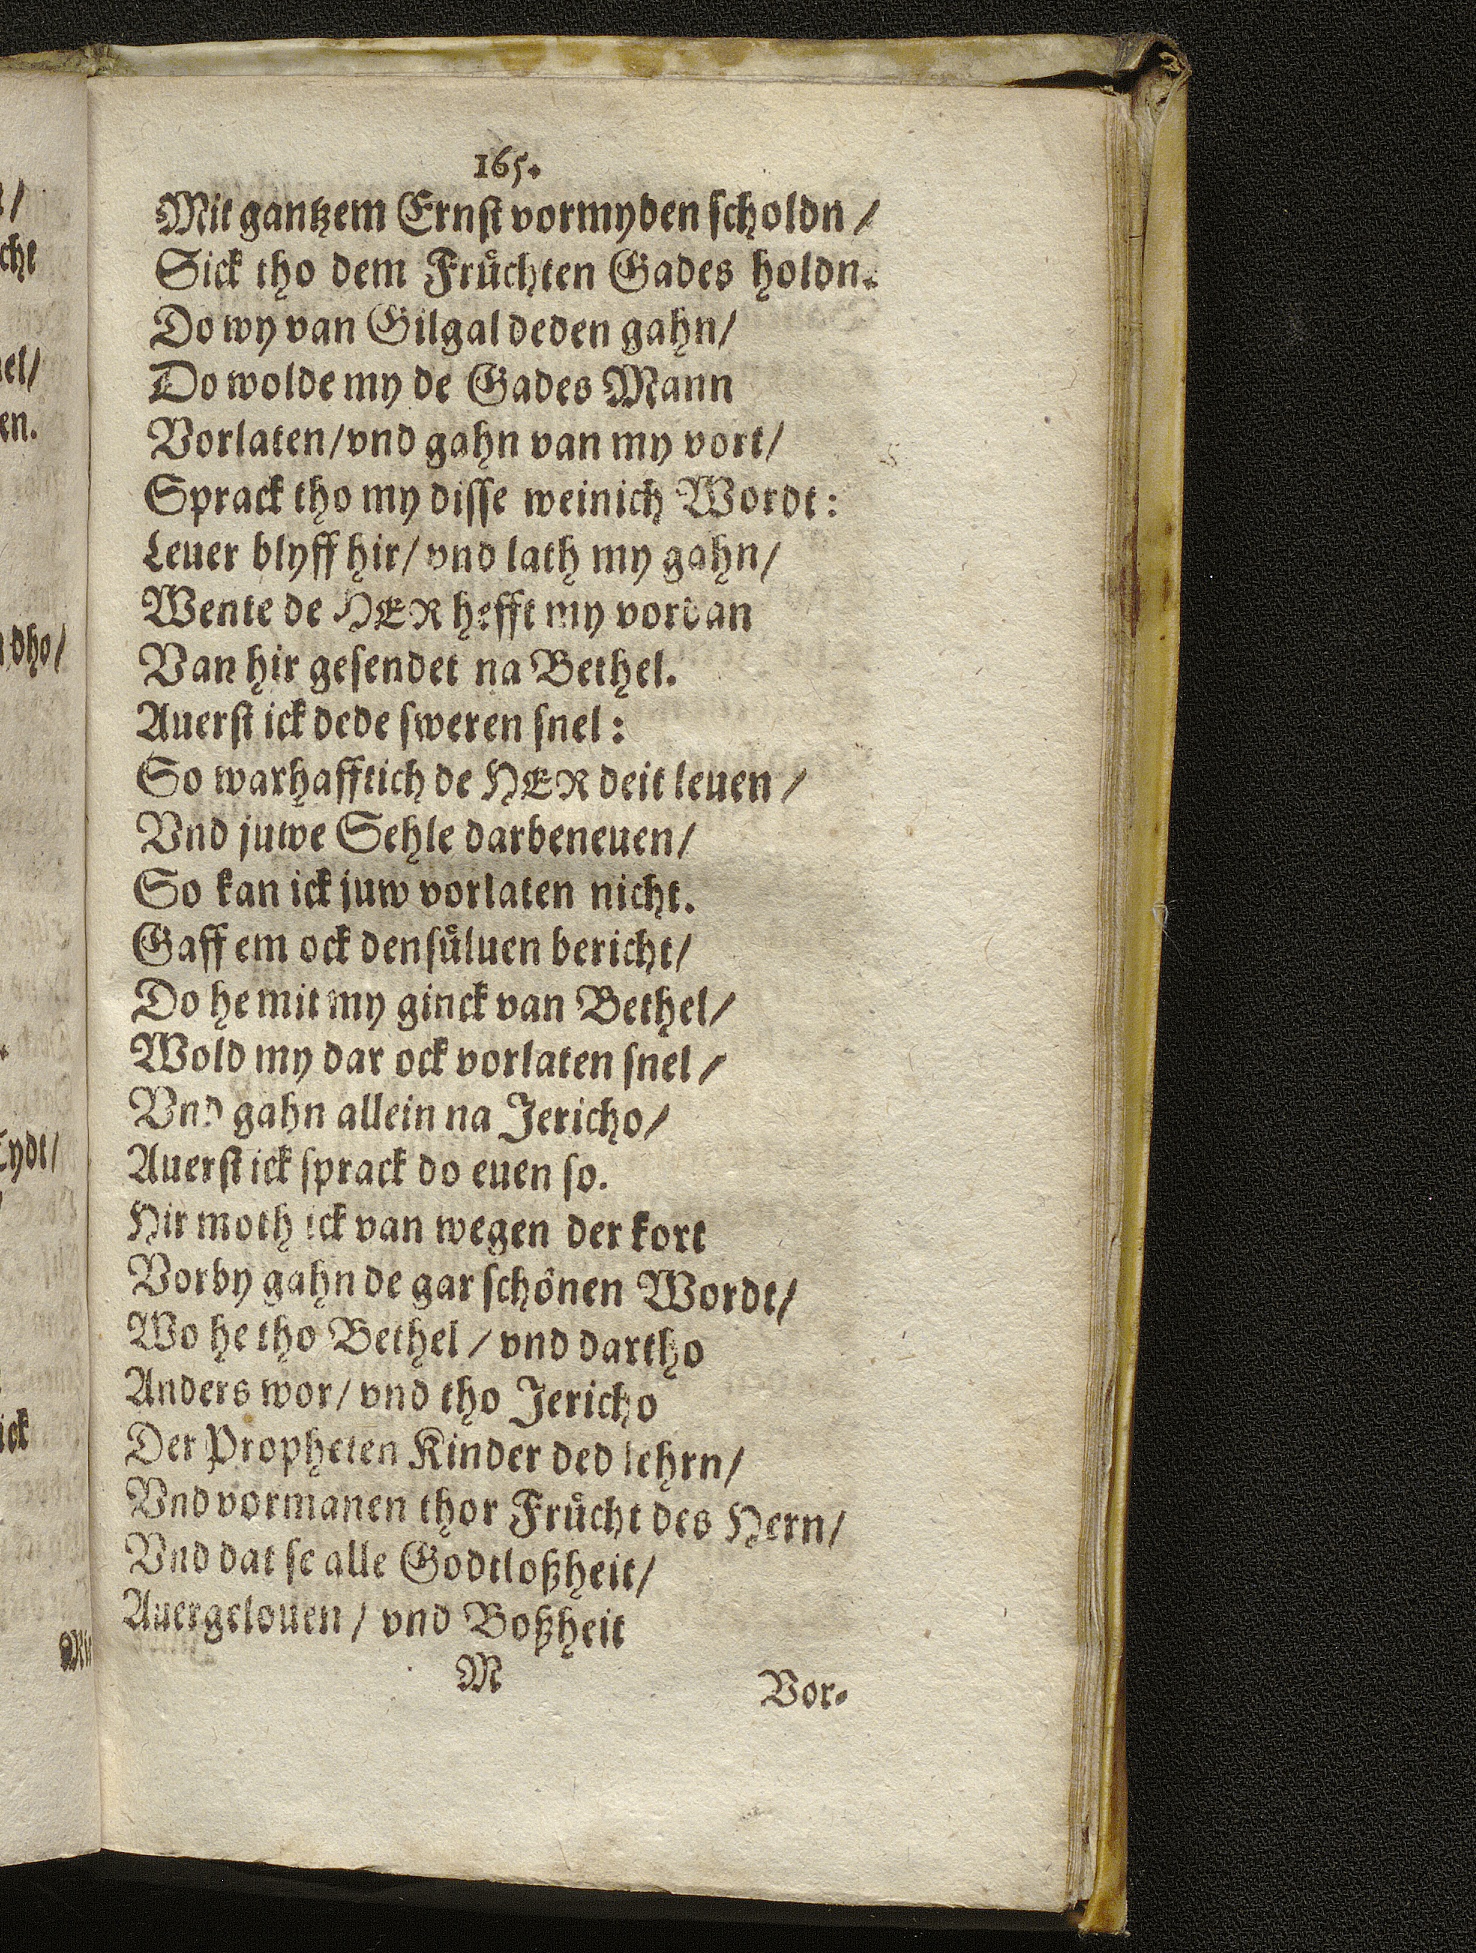 165.
Mit gantzem Ernſt vormyden ſcholdn /
Sick tho dem Fruͤchten Gades holdn.
Do wy van Gilgal deden gahn/
Do wolde my de Gades Mann
Vorlaten/vnd gahn van my vort/
Sprack tho my diſſe weinich Wordt:
Leuer blyff hir/ vnd lath my gahn/
Wente de HER hefft my vordan
Van hir geſendet na Bethel.
Auerſt ick dede ſweren ſnel:
So warhafftich de HER deit leuen /
Vnd juwe Sehle darbeneuen/
So kan ick juw vorlaten nicht.
Gaff em ock denſuͤluen bericht/
Do he mit my ginck van Bethel/
Wold my dar ock vorlaten ſnel/
Vnd gahn allein na Jericho/
Auerſt ick ſprack do euen ſo.
Hir moth ick van wegen der kort
Vorby gahn de gar ſchoͤnen Wordt/
Wo he tho Bethel / vnd dartho
Anders wor/ vnd tho Jericho
Der Propheten Kinder ded lehrn/
Vnd vormanen thor Fruͤcht des Hern/
Vnd dat ſe alle Godtloßheit/
Auergelouen / vnd Boßheit
M Vor-